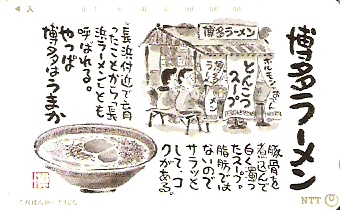 博多ラーメン
豚骨を
煮込んで
白く濁っ
たスープ。
脂肪では
ないので
サラッと
して、コ
クがある。
博多ラーメン
とんこつ
スープ
「長浜」付近で育
ったことから「長
浜ラーメン」とも
呼ばれる。
やっぱ
博多はうまか
入
NTT